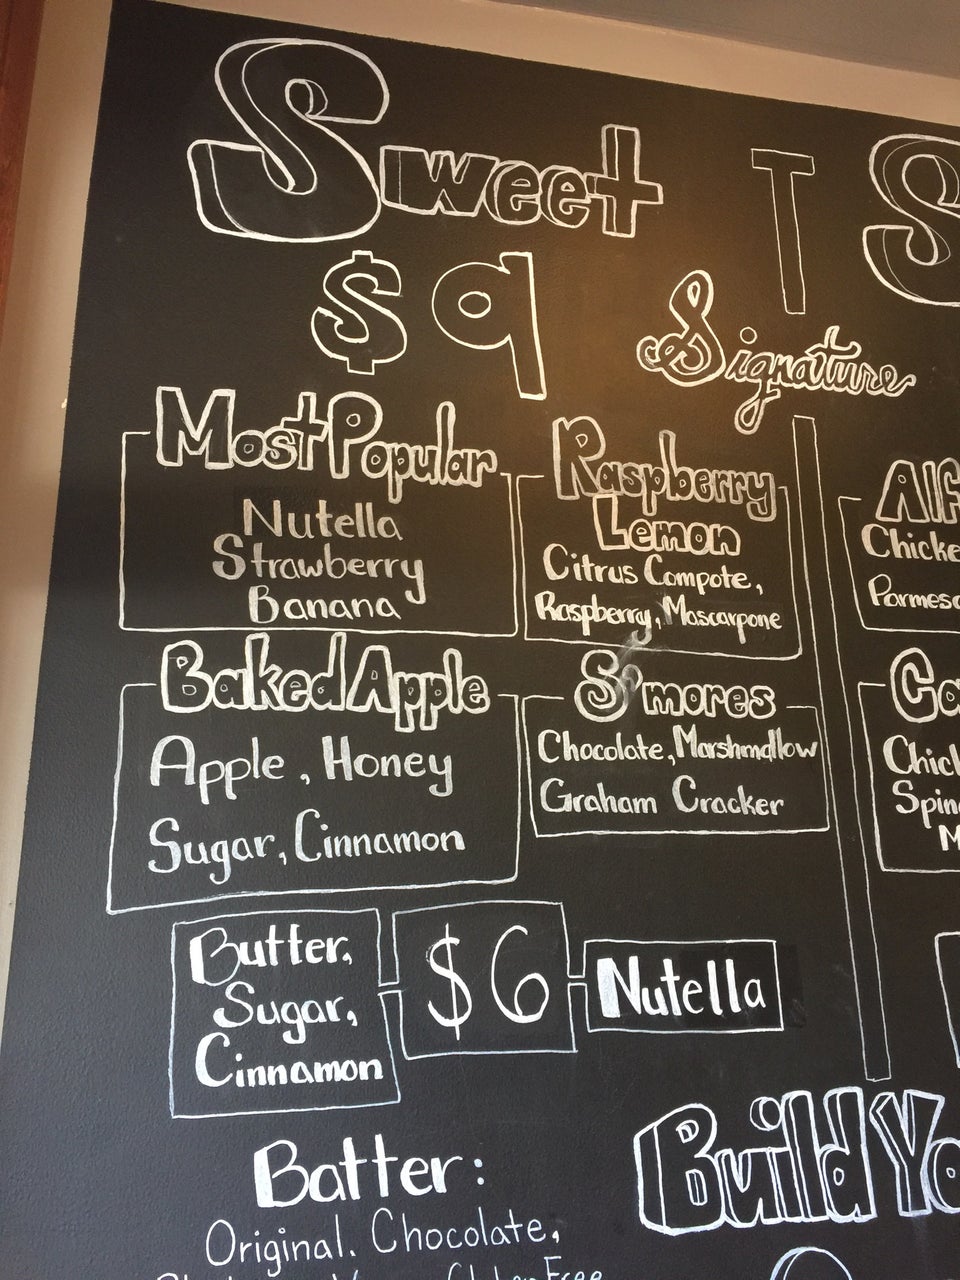 Sweet
$9
T S
Signature
Most Popular
Nutella
Strawberry
Banana
Raspberry
Lemon
Citrus Compote,
Raspberry, Mascarpone
Baked Apple
Apple, Honey
Sugar, Cinnamon
S'mores
Chocolate, Marshmallow
Graham Cracker
Alf
Chicke
Parmesa
Ca
Chick
Spin
M
Butter,
Sugar,
Cinnamon
$6
Nutella
Batter:
Original. Chocolate,
Gluten Free
Build Yo